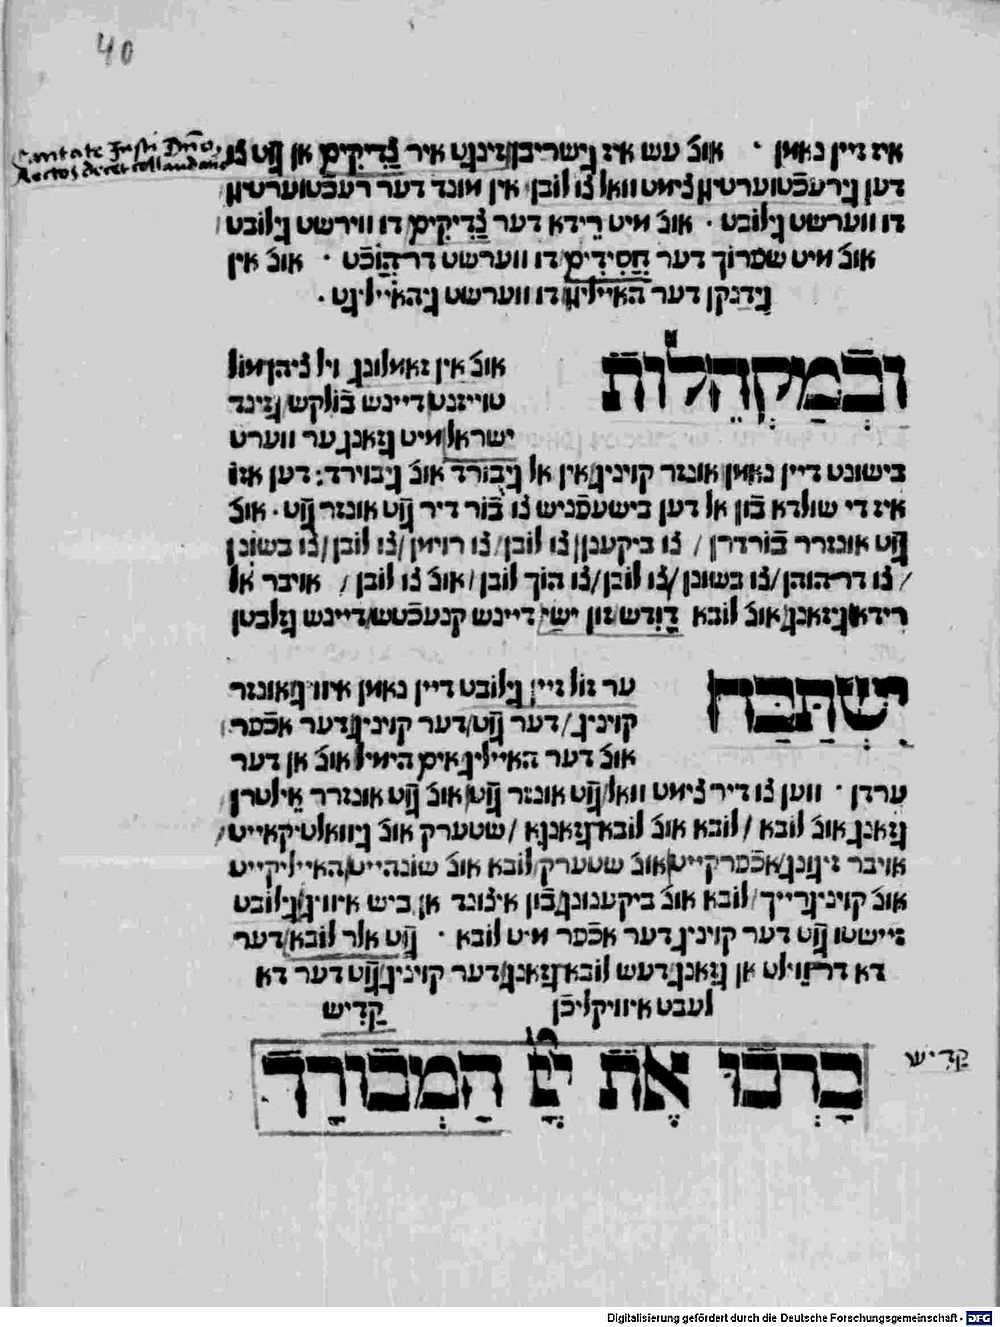 40
Cantate Justi Dño,
Rectos decet collaudatio
איז זיין נאמן · אונ' עש איז גישריבן זינגט איר צַדִיקִים אן גֿוט צו
דען גירעכֿטוערטיגן צימט וואל צו לובן אין מונד דער רעכֿטוערטיגן
דו ווערשט גילובט · אונ' מיט רֵידא דער צַדִיקִים דו ווירשט גילובט
אונ' מיט שפרוך דער חֲסִידִים דו ווערשט דרהֿוכֿט · אונ' אין
גידנקן דער האייליגן דו ווערשט גיהאייליגט ·
וּבְֿמַקְהֵלוֹתֿ
אונ' אין זאמלונג ויל ציהן מול
טויזנט דיינש בֿולקש גזינד
ישראל מיט גזאנג ער ווערט
בישונט דיין נאמן אונזר קויניג אין אל גיבורד אונ' גיבוירד: דען אזו
איז די שולדא בֿון אל דען בישעפֿניש צו בֿור דיר גֿוט אונזר גֿוט · אונ'
גֿוט אונזרר בֿורדרן / צו ביקענן / צו לובן / צו רוימן / צו לובן / צו בשונן
/ צו דרהוהן / צו בשונן / צו לובן / צו הוך לובן / אונ' צו לובן / אויבר אל
רידא גיזאנג אונ' לובא דָוִדש זון ישי דיינש קנעכֿטש דיינש גזלבטן
יִשְתַּבַּח
ער זול זיין גילובט דיין נאמן איוויג אונזר
קויניג / דער גֿוט / דער קויניג דער אכֿפר
אונ' דער האייליג אים הימיל אונ' אן דער
ערדן · ווען צו דיר צימט וואל גֿוט אונזר גֿוט אונ' גֿוט אונזרר אֵילטרן
גזאנג אונ' לובא / לובא אונ' לובא גזאנגא / שטערק אונ' גיוואלטיקאייט /
אויבר זיגונג אכֿפרקייט אונ' שטערק לובא אונ' שונהייט האייליקייט
אונ' קויניגרייך / לובא אונ' ביקענונג בֿון איצונד אן ביש איוויג גילובט
זיישטו גֿוט דער קויניג דער אכֿפר מיט לובא · גֿוט אלר לובא דער
דא דרוֵוילט אן גזאנג דעש לובא גזאנג דער קויניג גֿוט דער דא
לעבט איוויקליכֿן קַדִיש
קַדִיש
בָּרְכֿוּ אֶתֿ יְיָ הַמְבֿוֹרָךְ
Digitalisierung gefördert durch die Deutsche Forschungsgemeinschaft - DFG